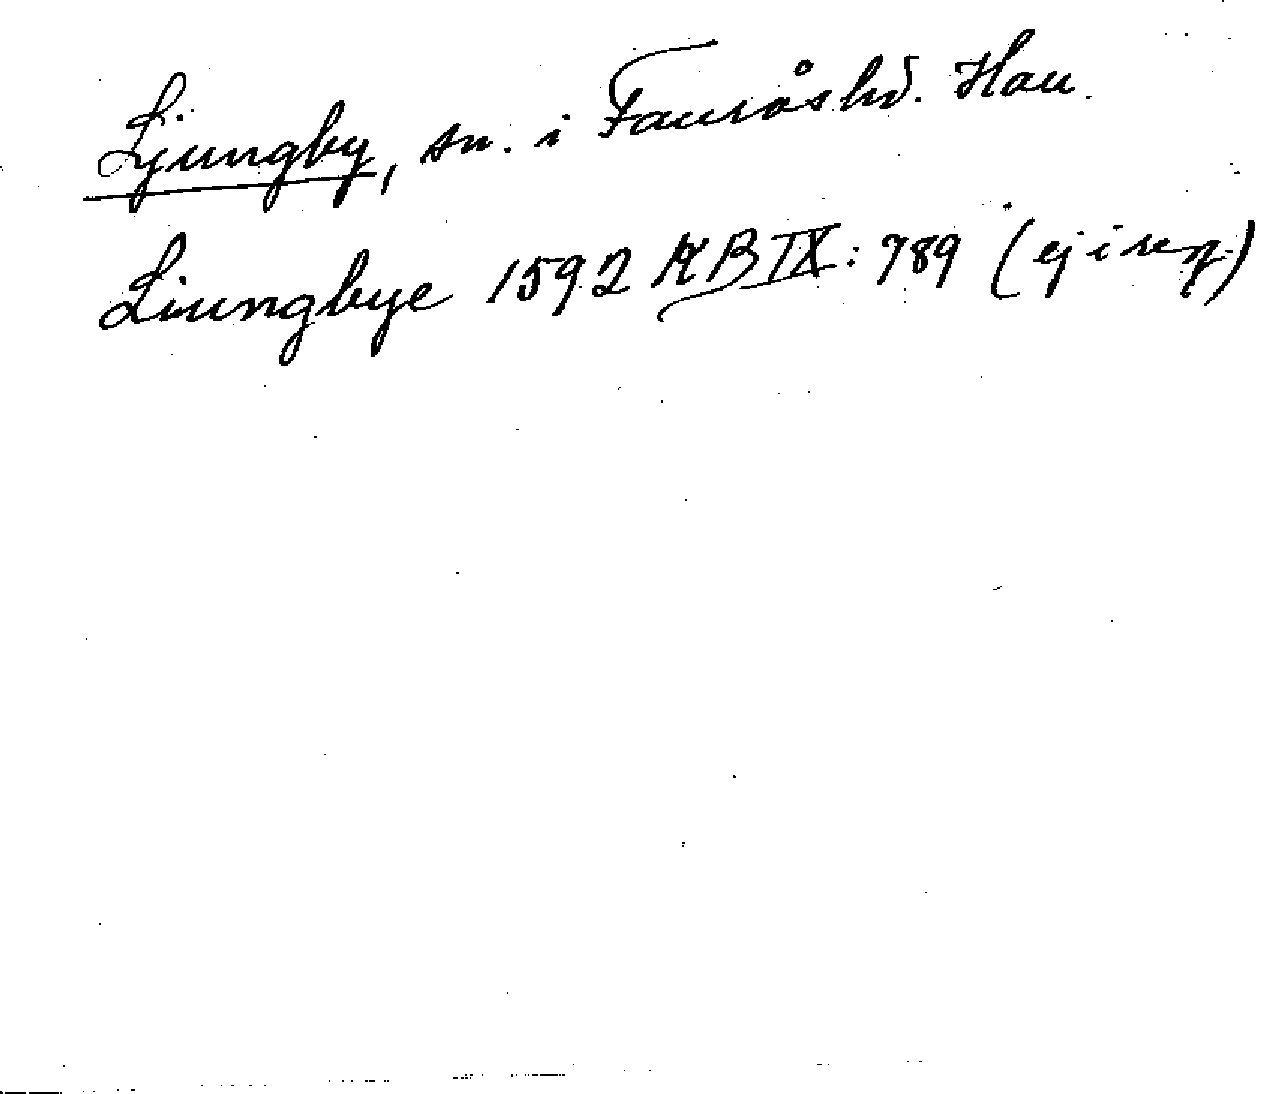 Ljungby, sn. i Fauråshd. Hall.
Liungbye 1592 KB IX: 789 (ej i reg)